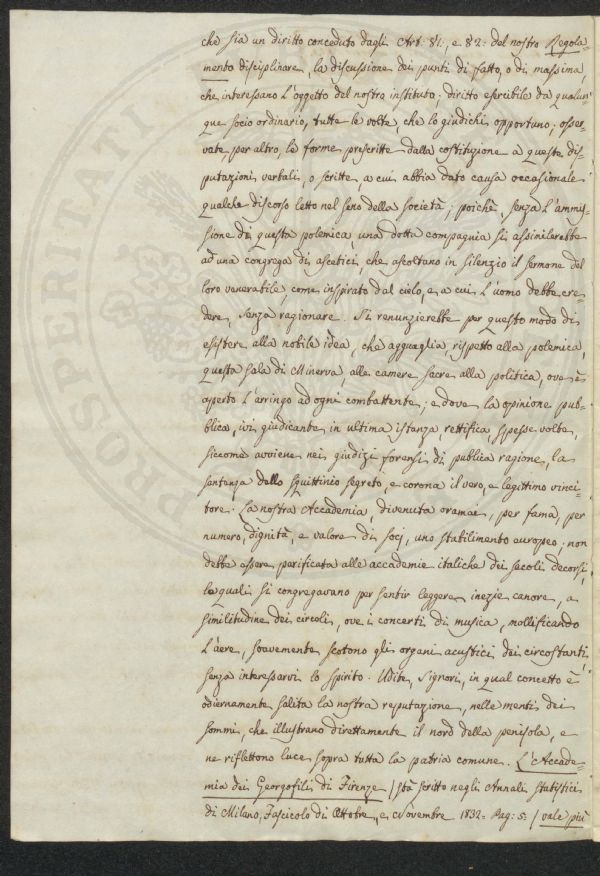 che sia un diritto conceduto dagli Art: 81:, e 82: del nostro Regola=
mento disciplinare, la discussione dei punti di fatto, o di massima,
che interessano l'oggetto del nostro instituto; diritto esercibile da qualun=
que socio ordinario, tutte le volte, che lo giudichi opportuno; osser=
vate per altro, le forme prescritte dalla costituzione a queste dis=
putazioni verbali, o scritte, a cui abbia dato causa occasionale
qualche discorso letto nel seno della società; poichè, senza l'ammis=
sione di questa polemica, una dotta compagnia si assimilerebbe
ad una congrega di ascetici, che ascoltano in silenzio il sermone del
loro venerabile, come inspirato dal cielo, e a cui l'uomo debbe cre=
dere, senza ragionare. Si renunzierebbe per questo modo di
esistere alla nobile idea, che agguaglia, rispetto alla polemica,
questa sala di Minerva, alle camere sacre alla politica, ove è
aperto l'arringo ad ogni combattente; e dove la opinione pub=
blica, ivi giudicante in ultima istanza, rettifica, spesse volte,
siccome avviene nei giudizi forensi di publica ragione, la
sentenza dello squittinio segreto, e corona il vero, e legittimo vinci=
tore. La nostra Accademia, divenuta oramai, per fama, per
numero, dignità, e valore di socj, uno stabilimento europeo, non
debbe essere parificata alle accademie italiche dei secoli decorsi,
le quali si congregavano per sentir leggere inezie canore, a
similitudine dei circoli, ove i concerti di musica, mollificando
l'aere, soavemente scotono gli organi acustici dei circostanti,
senza interessarvi lo spirito. Udite, Signori, in qual concetto è
odiernamente salita la nostra reputazione, nelle menti dei
sommi, che illustrano direttamente il nord della penisola, e
ne riflettono luce sopra tutta la patria comune. L'Accade=
mia dei Georgofili di Firenze / sta scritto negli Annali statistici
di Milano, Fascicolo di Ottobre, e Novembre 1832. Pag: 5: / vale più
PROSPERITATI